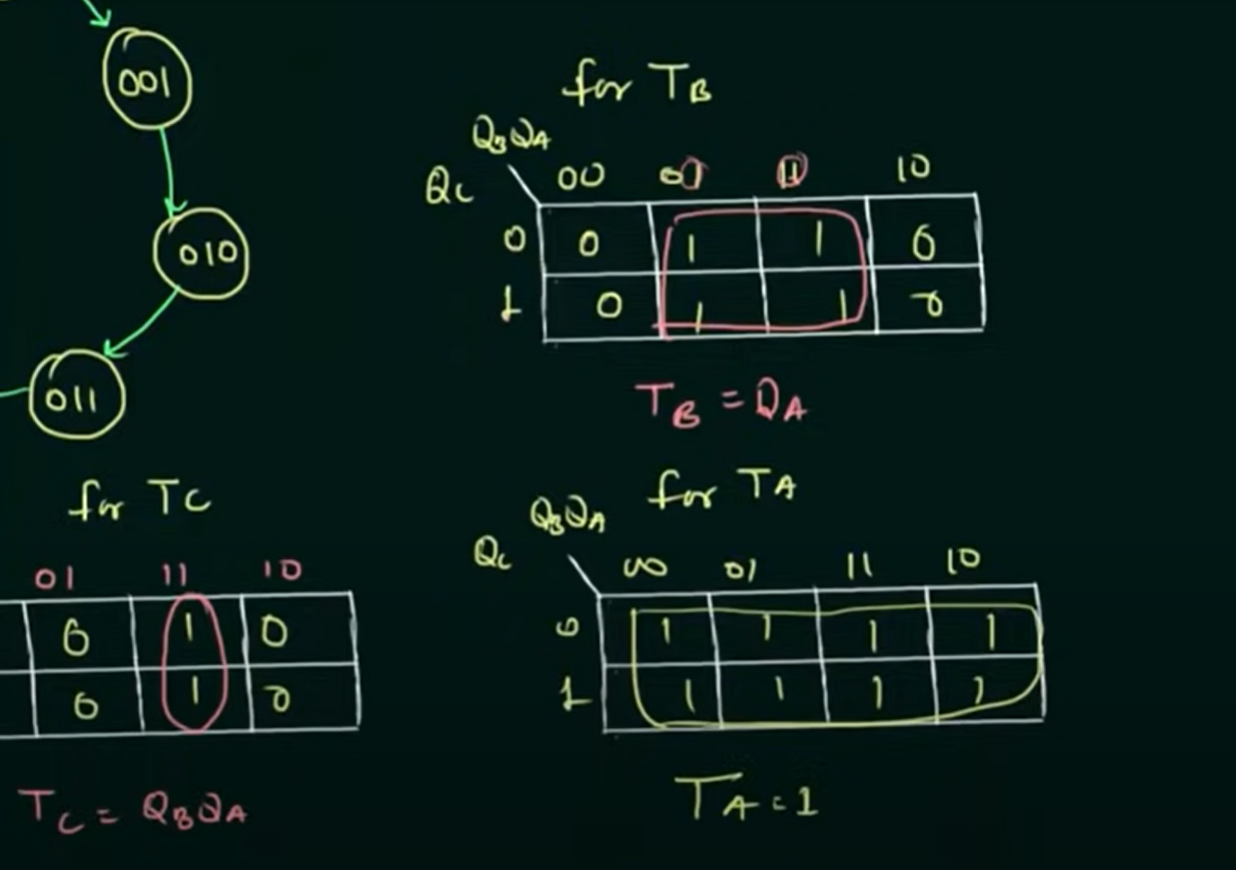 001
010
011
for TB
QBQA
QC
00 01 11 10
0 0 1 1 0
1 0 1 1 0
TB = QA
for TC
01 11 10
0 1 0
0 1 0
TC = QBQA
for TA
QBQA
QC
00 01 11 10
0 1 1 1 1
1 1 1 1 1
TA = 1